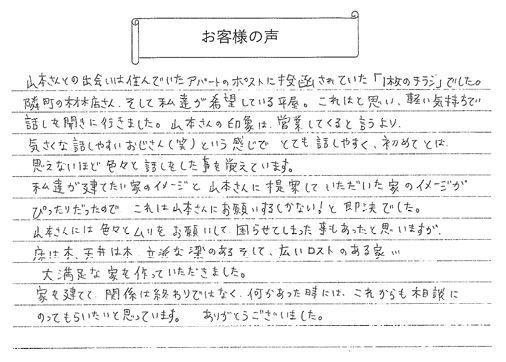 お客様の声
山本さんとの出会いは住んでいたアパートのポストに投函されていた「1枚のチラシ」でした。
隣町の材木店さん、そして私達が希望している平屋。これはと思い、軽い気持ちで
話しを聞きに行きました。山本さんの印象は、営業してくると言うより、
気さくな話しやすいおじさん(笑)という感じで とても話しやすく、初めてとは
思えないほど色々と話しをした事を覚えています。
私達が建てたい家のイメージと山本さんに提案していただいた家のイメージが
ぴったりだったので これは山本さんにお願いするしかない!と即決でした。
山本さんには色々とムリをお願いして、困らせてしまった事もあったと思いますが、
床は木、天井は木、立派な梁のあるそして、広いロストのある家…
大満足な家を作っていただきました。
家を建てて関係は終わりではなく、何かあった時には、これからも相談に
のってもらいたいと思っています。 ありがとうございました。